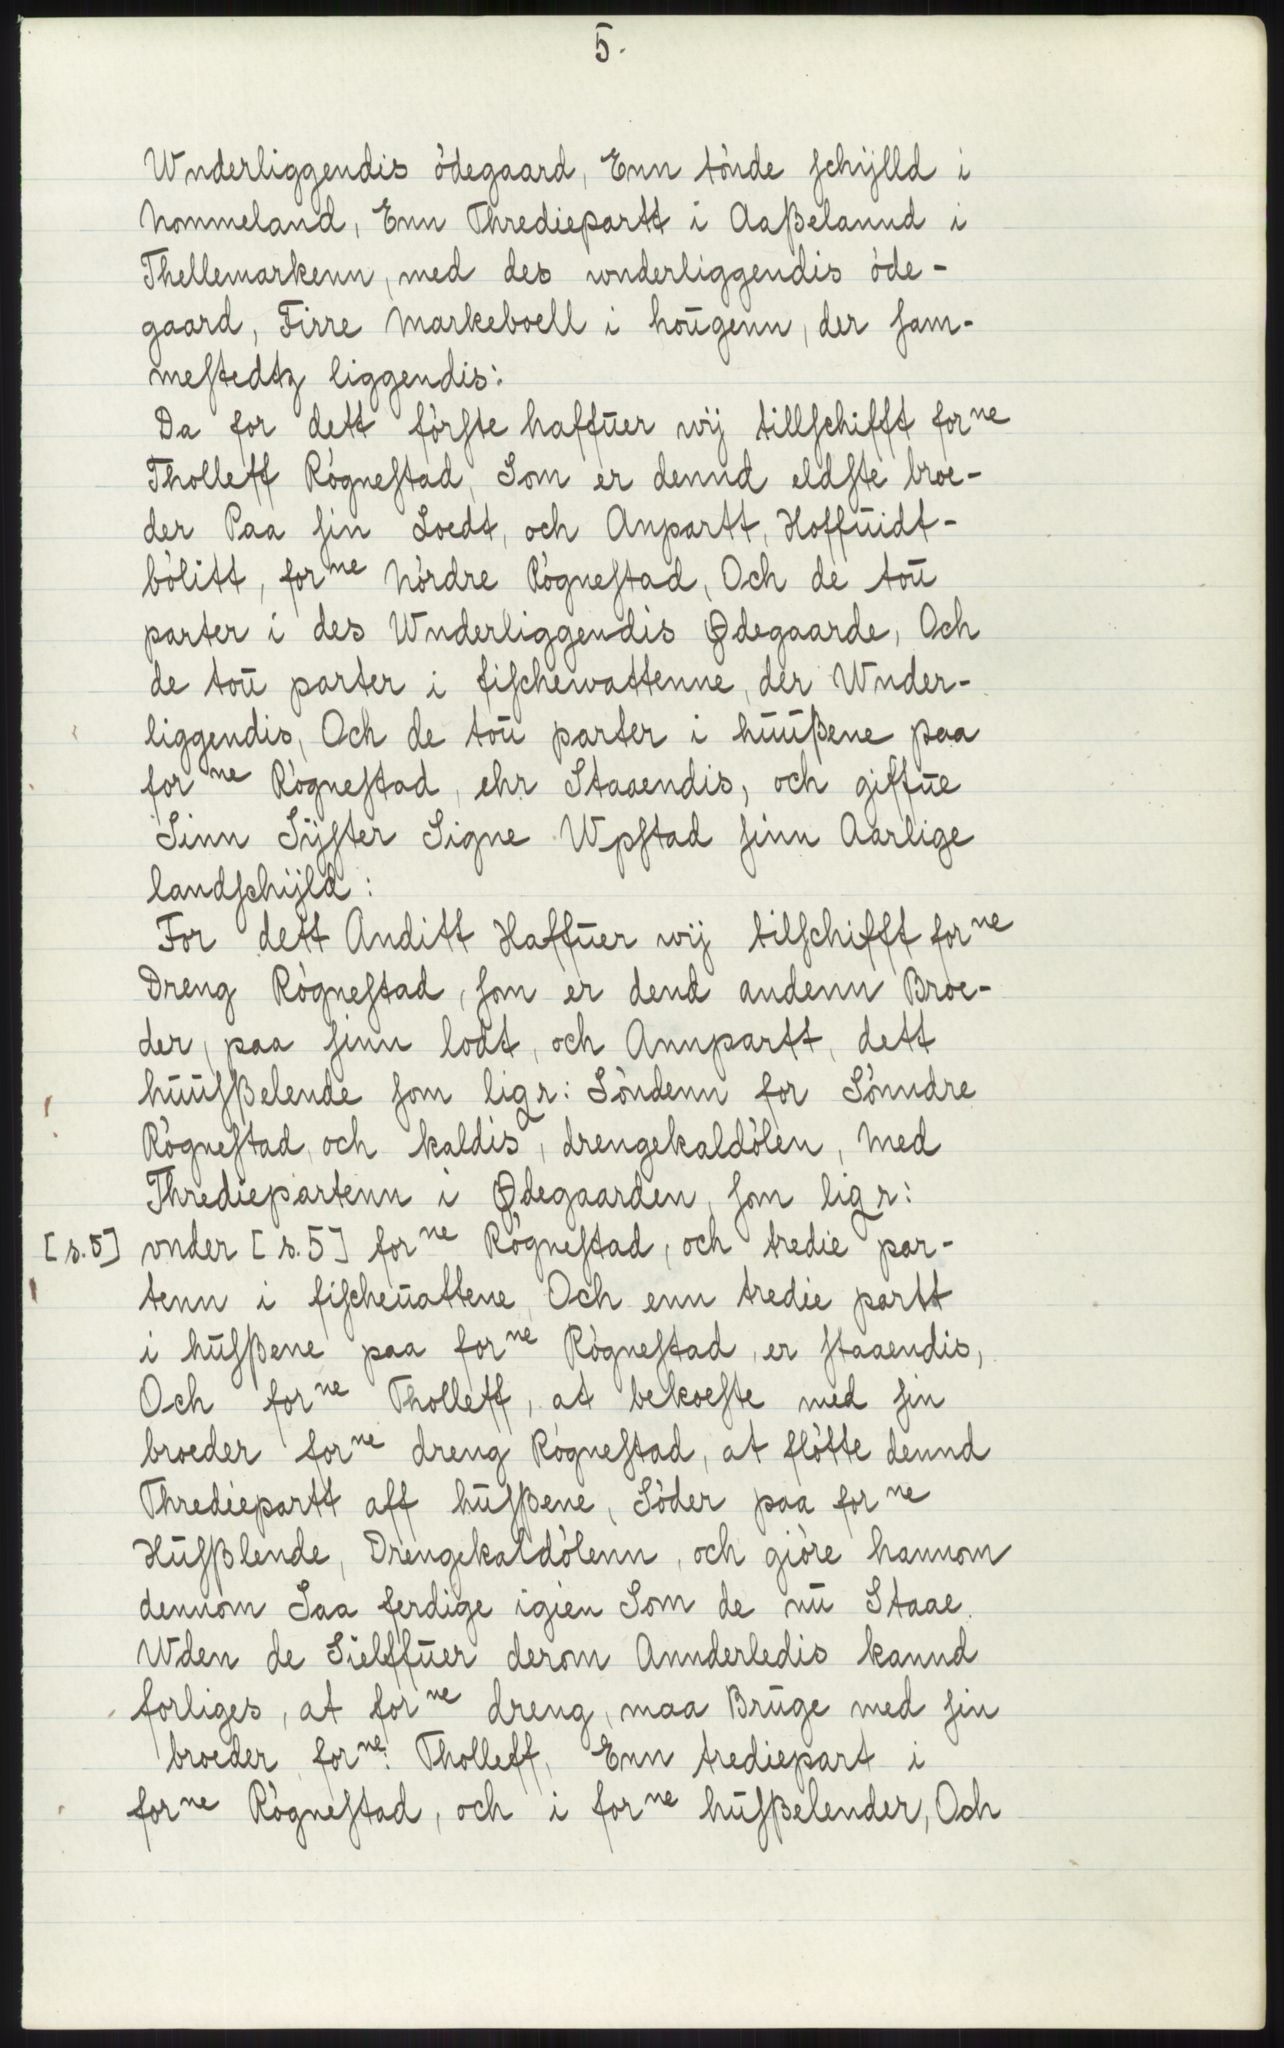 5.
Wnderliggendis ódegaard, Enn tónde ſchÿlld i
Nommeland, Enn Thrediepartt i Aaßelannd i
Thellemarkenn, med des wnderliggendis óde-
gaard, Firre Markeboell i hoūgenn, der ſam-
meſtedtz liggendis:
Da for dett fórſte haffūer wÿ tillſchifft forⁿᵉ
Tholleff Rógneſtad, Som er dennd eldſte broe-
der Paa ſin Loedt, och Anpartt, Hoffūidt-
bólitt, forⁿᵉ Nórdre Rógneſtad, Och de toū
parter i des Wnderliggendis Ødegaarde, Och
de toū parter i fiſchewattenne, der Wnder-
liggendis, Och de toū parter i hūūßene paa
forⁿᵉ Rógneſtad, ehr Staaendis, och giffūe
Sinn Sÿſter Signe Wpſtad ſinn Aarlige
landſchÿld:
For dett Anditt Haffūer wÿ tilſchifft forⁿᵉ
Dreng Rógneſtad, ſom er dend andenn Broe-
der, paa ſinn lodt, och Annpartt, dett
hūūſßelende ſom ligr: Sóndenn for Sónndre
Rógneſtad, och kaldis, drengekaldólen, Med
Thrediepartenn i Ødegaarden, ſom ligr:
[s.5] vnder [s.5] forⁿᵉ Rógneſtad, och tredie par-
tenn i fiſcheūattene, Och enn tredie partt
i hūſßene paa forⁿᵉ Rógneſtad, er ſtaaendis,
Och forⁿᵉ Tholleff, at bekoeſte med ſin
broeder forⁿᵉ dreng Rógneſtad, at flótte dennd
Thrediepartt aff hūſßene, Sóder paa forⁿᵉ
Hūſßlende, Drengekaldólenn, och gióre hannom
dennom Saa ferdige igien Som de nū Staae.
Wden de Sielffūer derom Annderledis kannd
forliges, at forⁿᵉ dreng, maa Brūge med ſin
broeder forⁿᵉ: Tholleff, Enn trediepart i
forⁿᵉ Rógneſtad, och i forⁿᵉ hūſßelender, Och